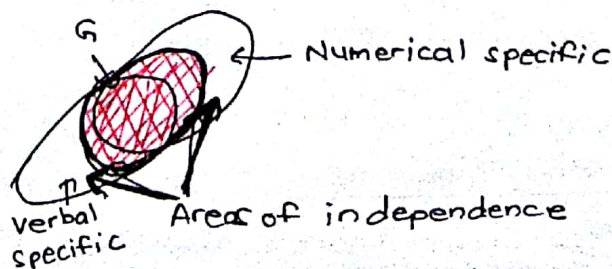 G
Numerical specific
Verbal
specific
Areas of independence